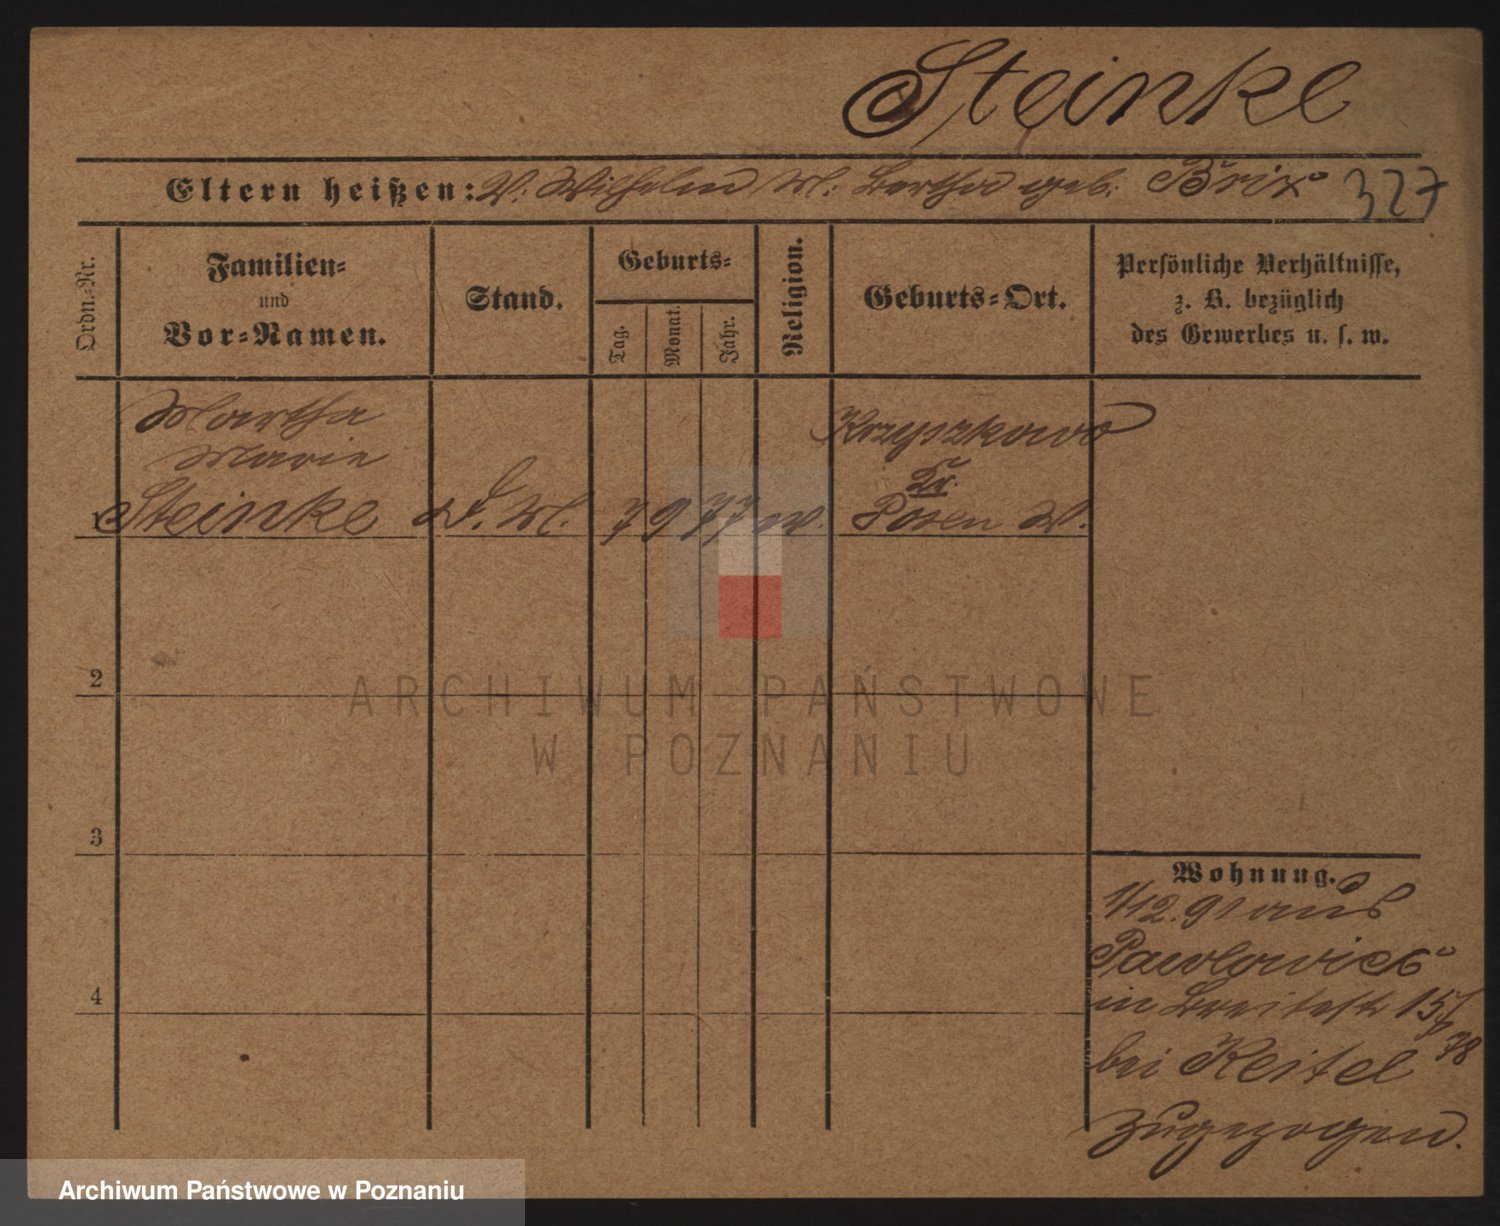 Steinke
Eltern heißen: V. Wilhelm M. Bertha geb. Brix 327
Ordn.-Nr.
Familien-
und
Vor-Namen.
Stand.
Geburts-
Tag.
Monat.
Jahr.
Religion.
Geburts-Ort.
Persönliche Verhältnisse,
z. B. bezüglich
des Gewerbes u. s. w.
Martha
Marie
1 Steinke
7 9 77
Krzyszkowo
Kr.
Posen W.
2
3
4
Wohnung.
1/12. 91 aus
Pawlowice
in Breitestr 15
bei Keitel 78
zugezogen.
ARCHIWUM PAŃSTWOWE
W POZNANIU
Archiwum Państwowe w Poznaniu